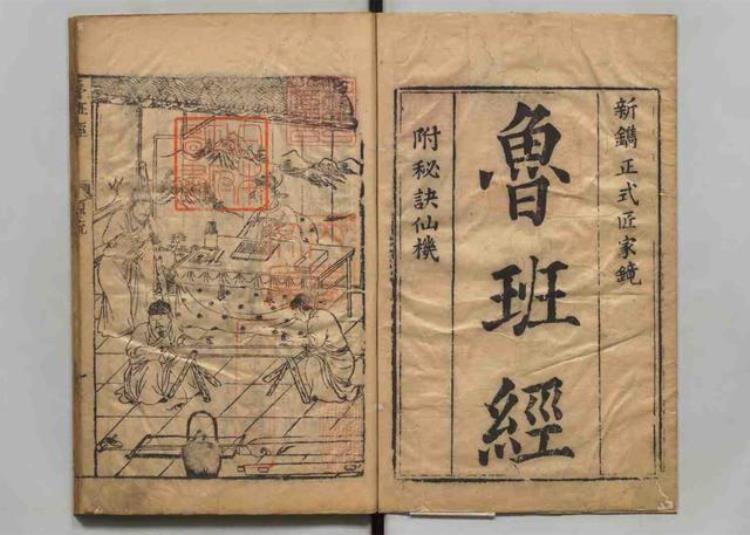 新鐫正式匠家鏡
魯班經
附秘訣仙機